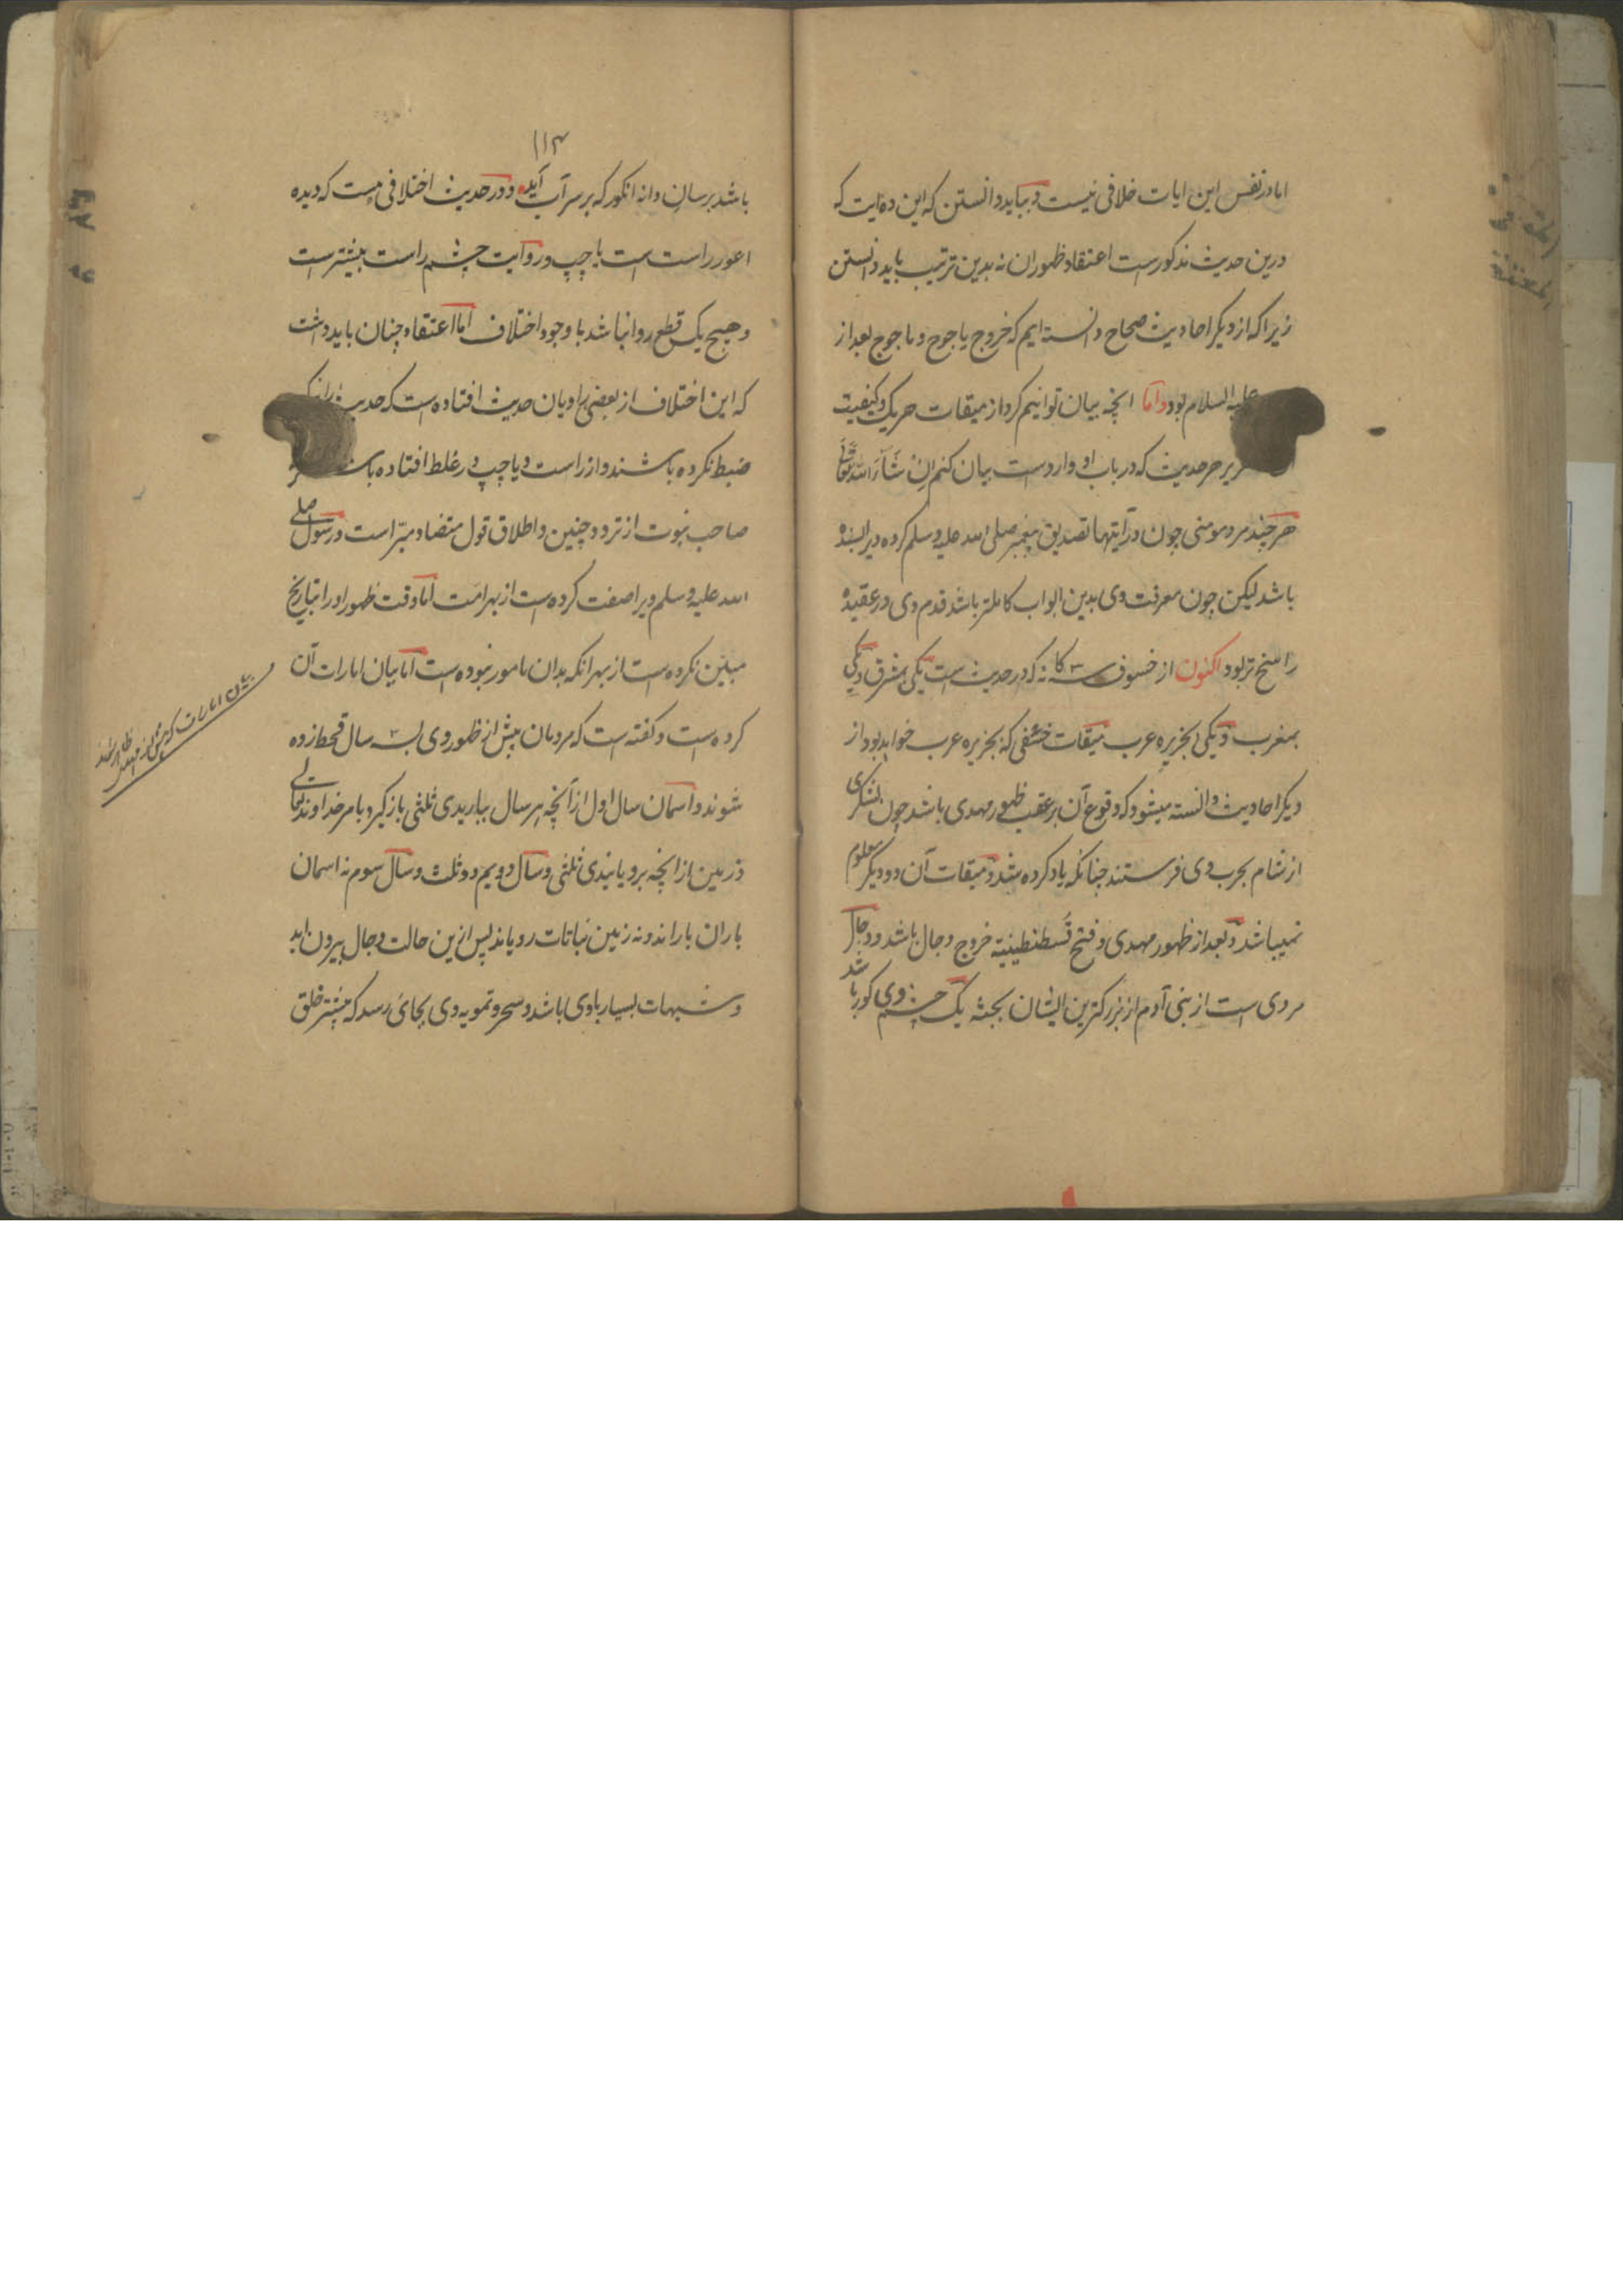 اما در نفس این ایات خلافی نیست و بباید دانستن که این ده ایت که
درین حدیث مذکورست اعتقاد ظهور ان نه بدین ترتیب باید دانستن
زیرا که از دیگر احادیث صحاح دانسته ایم که خروج یاجوج و ماجوج بعد از
علیه السلام بود و اما انچه بیان توانیم کرد از میقات هریک و کیفیت
هر حدیث که در باب او واردست بیان کنم ان شاء الله تعالی
هر چند مرد مومنی چون در آیتها تصدیق پیغمبر صلی الله علیه وسلم کرده ویرا بسنده
باشد لیکن چون معرفت وی بدین ابواب کاملتر باشد قدم وی در عقیده
راسخ تر بود اکنون از خسوف سه کانه که در حدیث است یکی بمشرق و یکی
بمغرب و یکی بجزیره عرب میقات خسفی که بجزیره عرب خواهد بود از
دیگر احادیث دانسته میشود که وقوع آن بر عقب ظهور مهدی باشد چون لشکری
از شام بحرب وی فرستند چنانکه یاد کرده شد و میقات آن دو دیگر معلوم
نمیباشد و بعد از ظهور مهدی و فتح قسطنطینیه خروج دجال باشد و دجال
مردی است از بنی آدم از بزرگترین ایشان بجثه یک چشم وی کور باشد
۱۱۴
باشد برسان دانه انکور که بر سر آب آید و در حدیث اختلافی هست که دیده
اعور راست است یا چپ و روایت چشم راست بیشترست
و هیچ یک قطع روا نباشد با وجود اختلاف اما اعتقاد چنان باید داشت
که این اختلاف از بعضی راویان حدیث افتاده است که حدیث را نیک
ضبط نکرده باشند و از راست و یا چپ در غلط افتاده
صاحب نبوت از تردد چنین و اطلاق قول متضاد مبرّاست و رسول صلی
الله علیه وسلم ویرا صفت کرده است از بهر امت اما وقت ظهور او را بتاریخ
مبیّن نکرده است از بهر انکه بدان مامور نبوده است اما بیان امارات آن
کرده است و کفته است که مردمان پیش از ظهور وی بسه سال قحط زده
شوند و اسمان سال اول از آنچه هر سال بباریدی ثلثی باز گیرد بامر خداوند تعالی
و زمین از انچه برویانیدی ثلثی و سال دویم دو ثلث و سال سوم نه اسمان
باران باراند و نه زمین نباتات رویاند پس ازین حالت دجال بیرون اید
و شبهات بسیار باوی باشد و سحر و تمویه وی بجائی رسد که بیشتر خلق